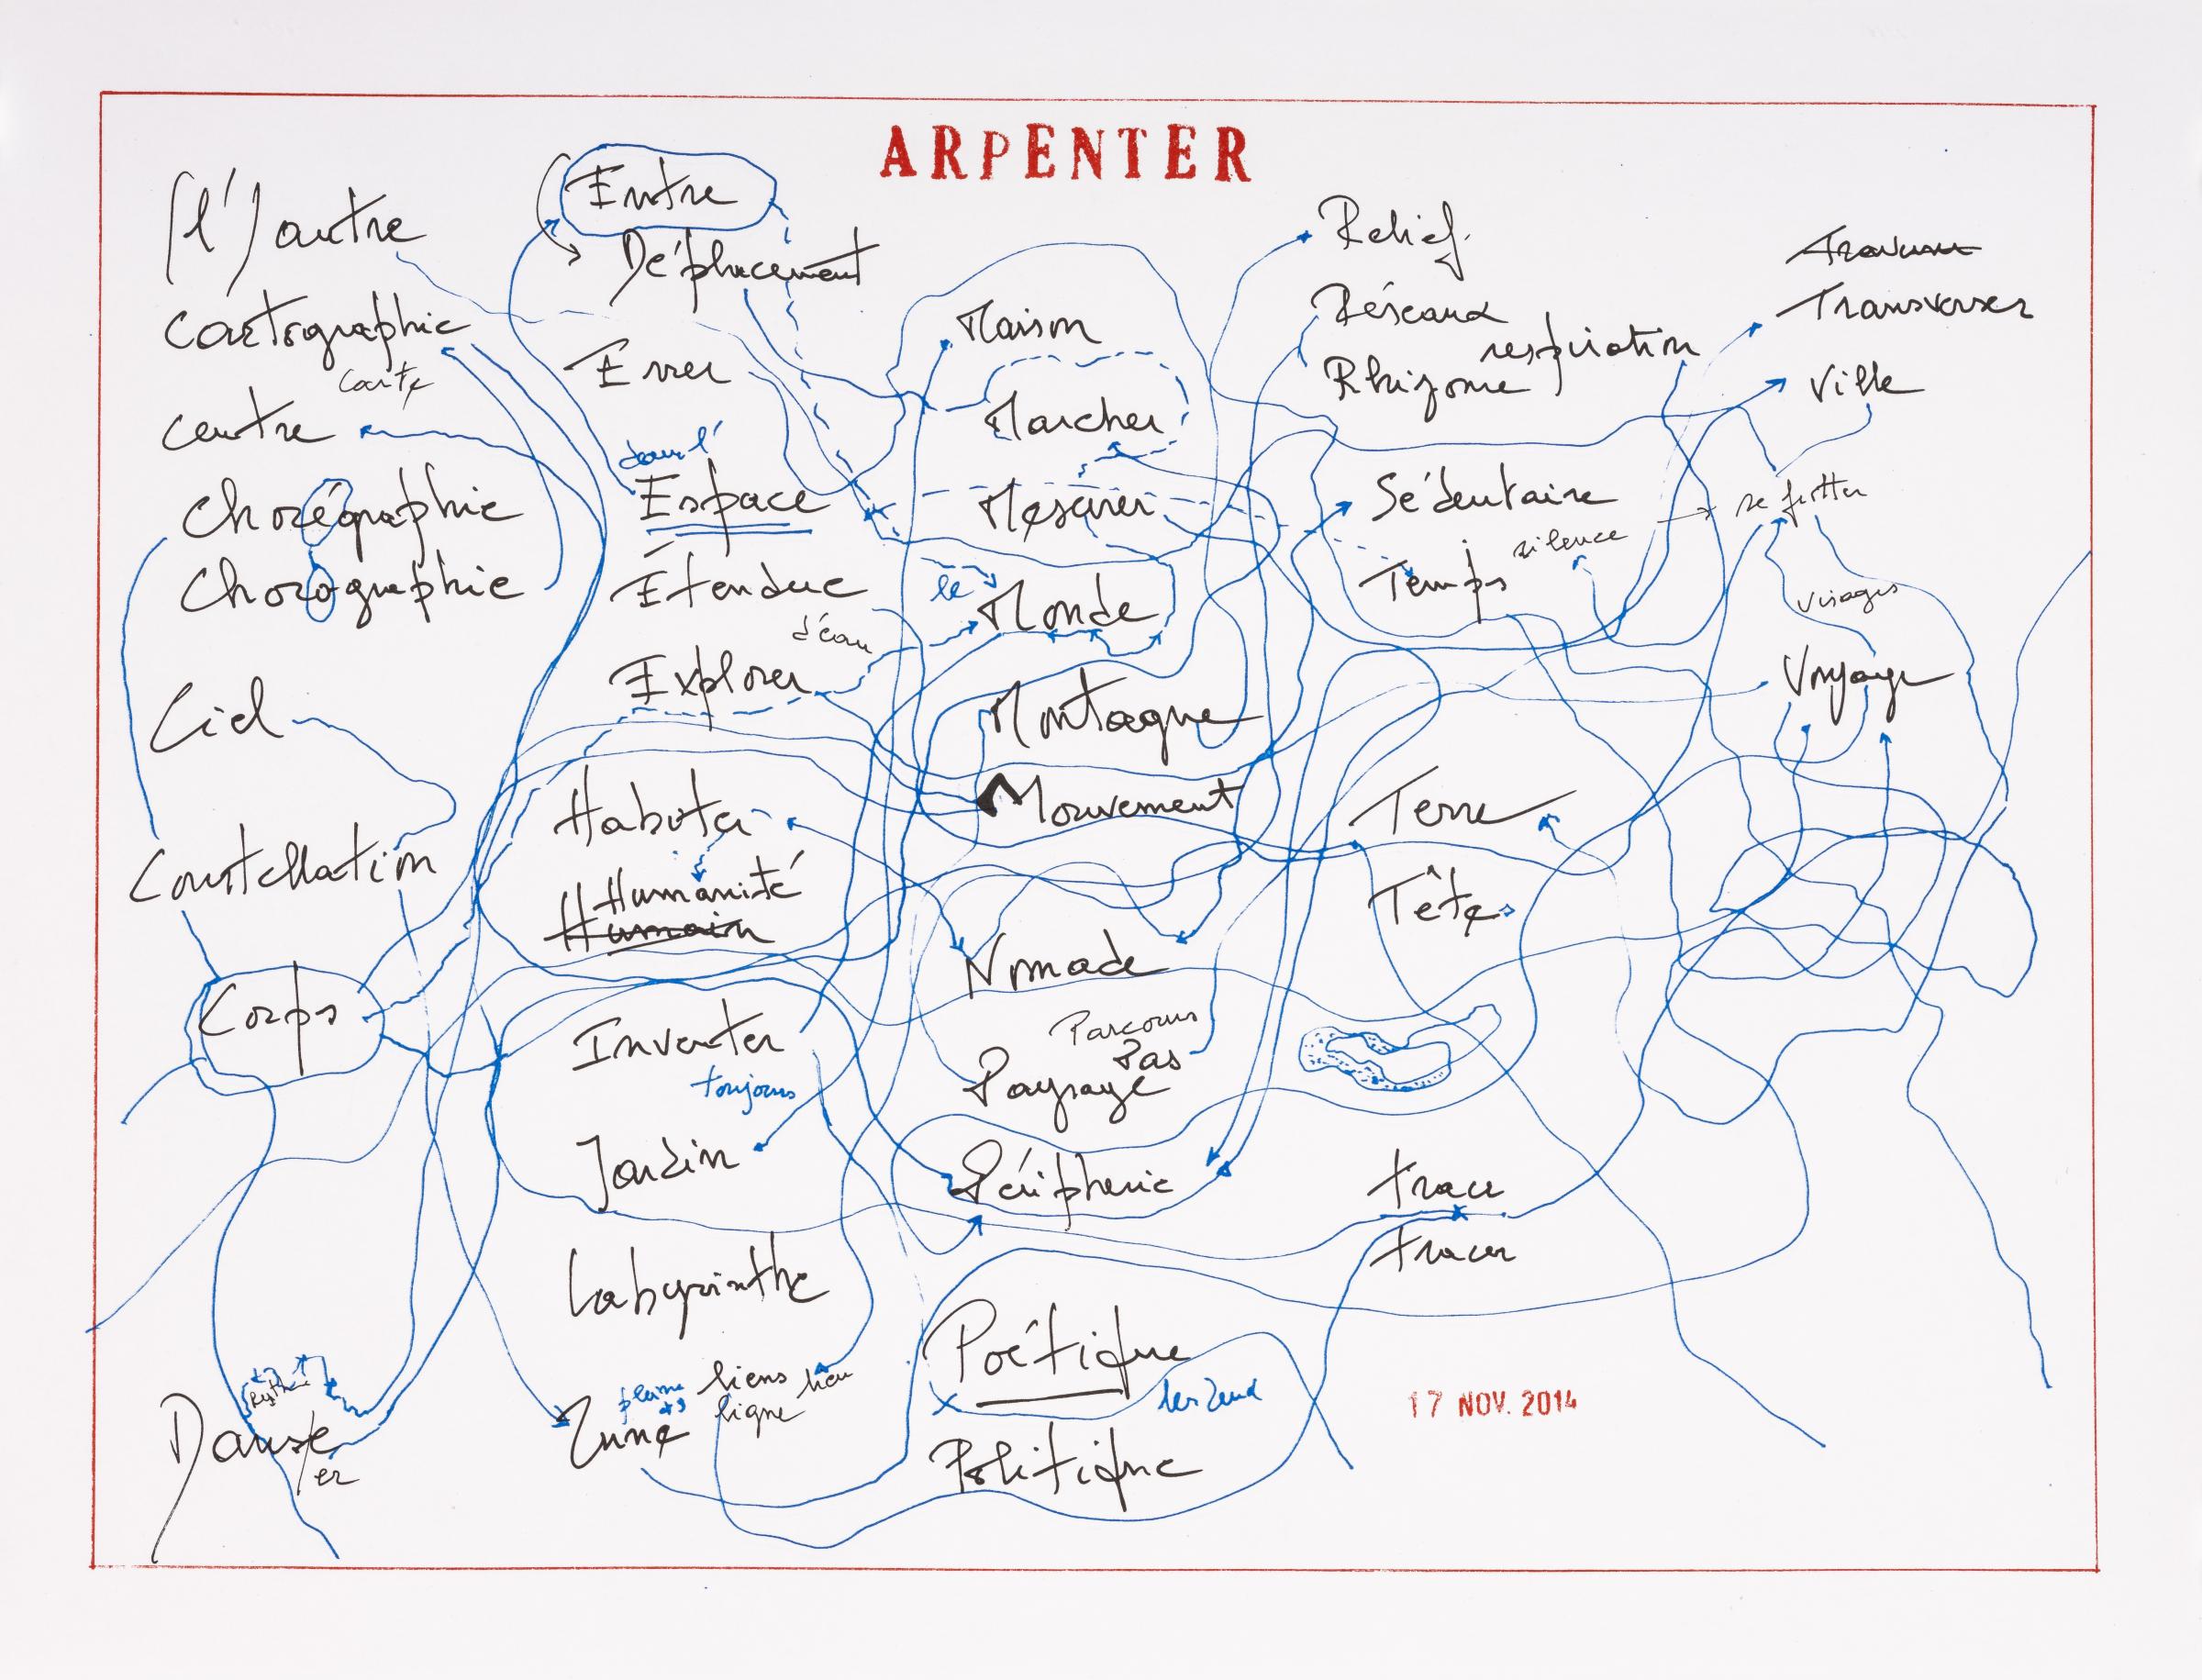 ARPENTER
(l') autre
Cartographie
Carte
Centre
Chorégraphie
Chorographie
Ciel
Constellation
Corps
Rythme
Danse/er
Entre
Déplacement
Errer
dans l'
Espace
Étendue
d'eau
Explorer
Habiter
Humanité
Humain
Inventer
toujours
Jardin
Labyrinthe
liens lieu
pleine
ligne
Lune
Maison
Marcher
Mesurer
le
Monde
Montagne
Mouvement
Nomade
Parcours
Pas
Paysage
Périphérie
Poétique
les deux
Politique
Relief
Réseaux
respiration
Rhizome
Sédentaire
silence
Temps
Terre
Tête
trace
tracer
17 NOV. 2014
Transverser
Ville
visages
Voyage